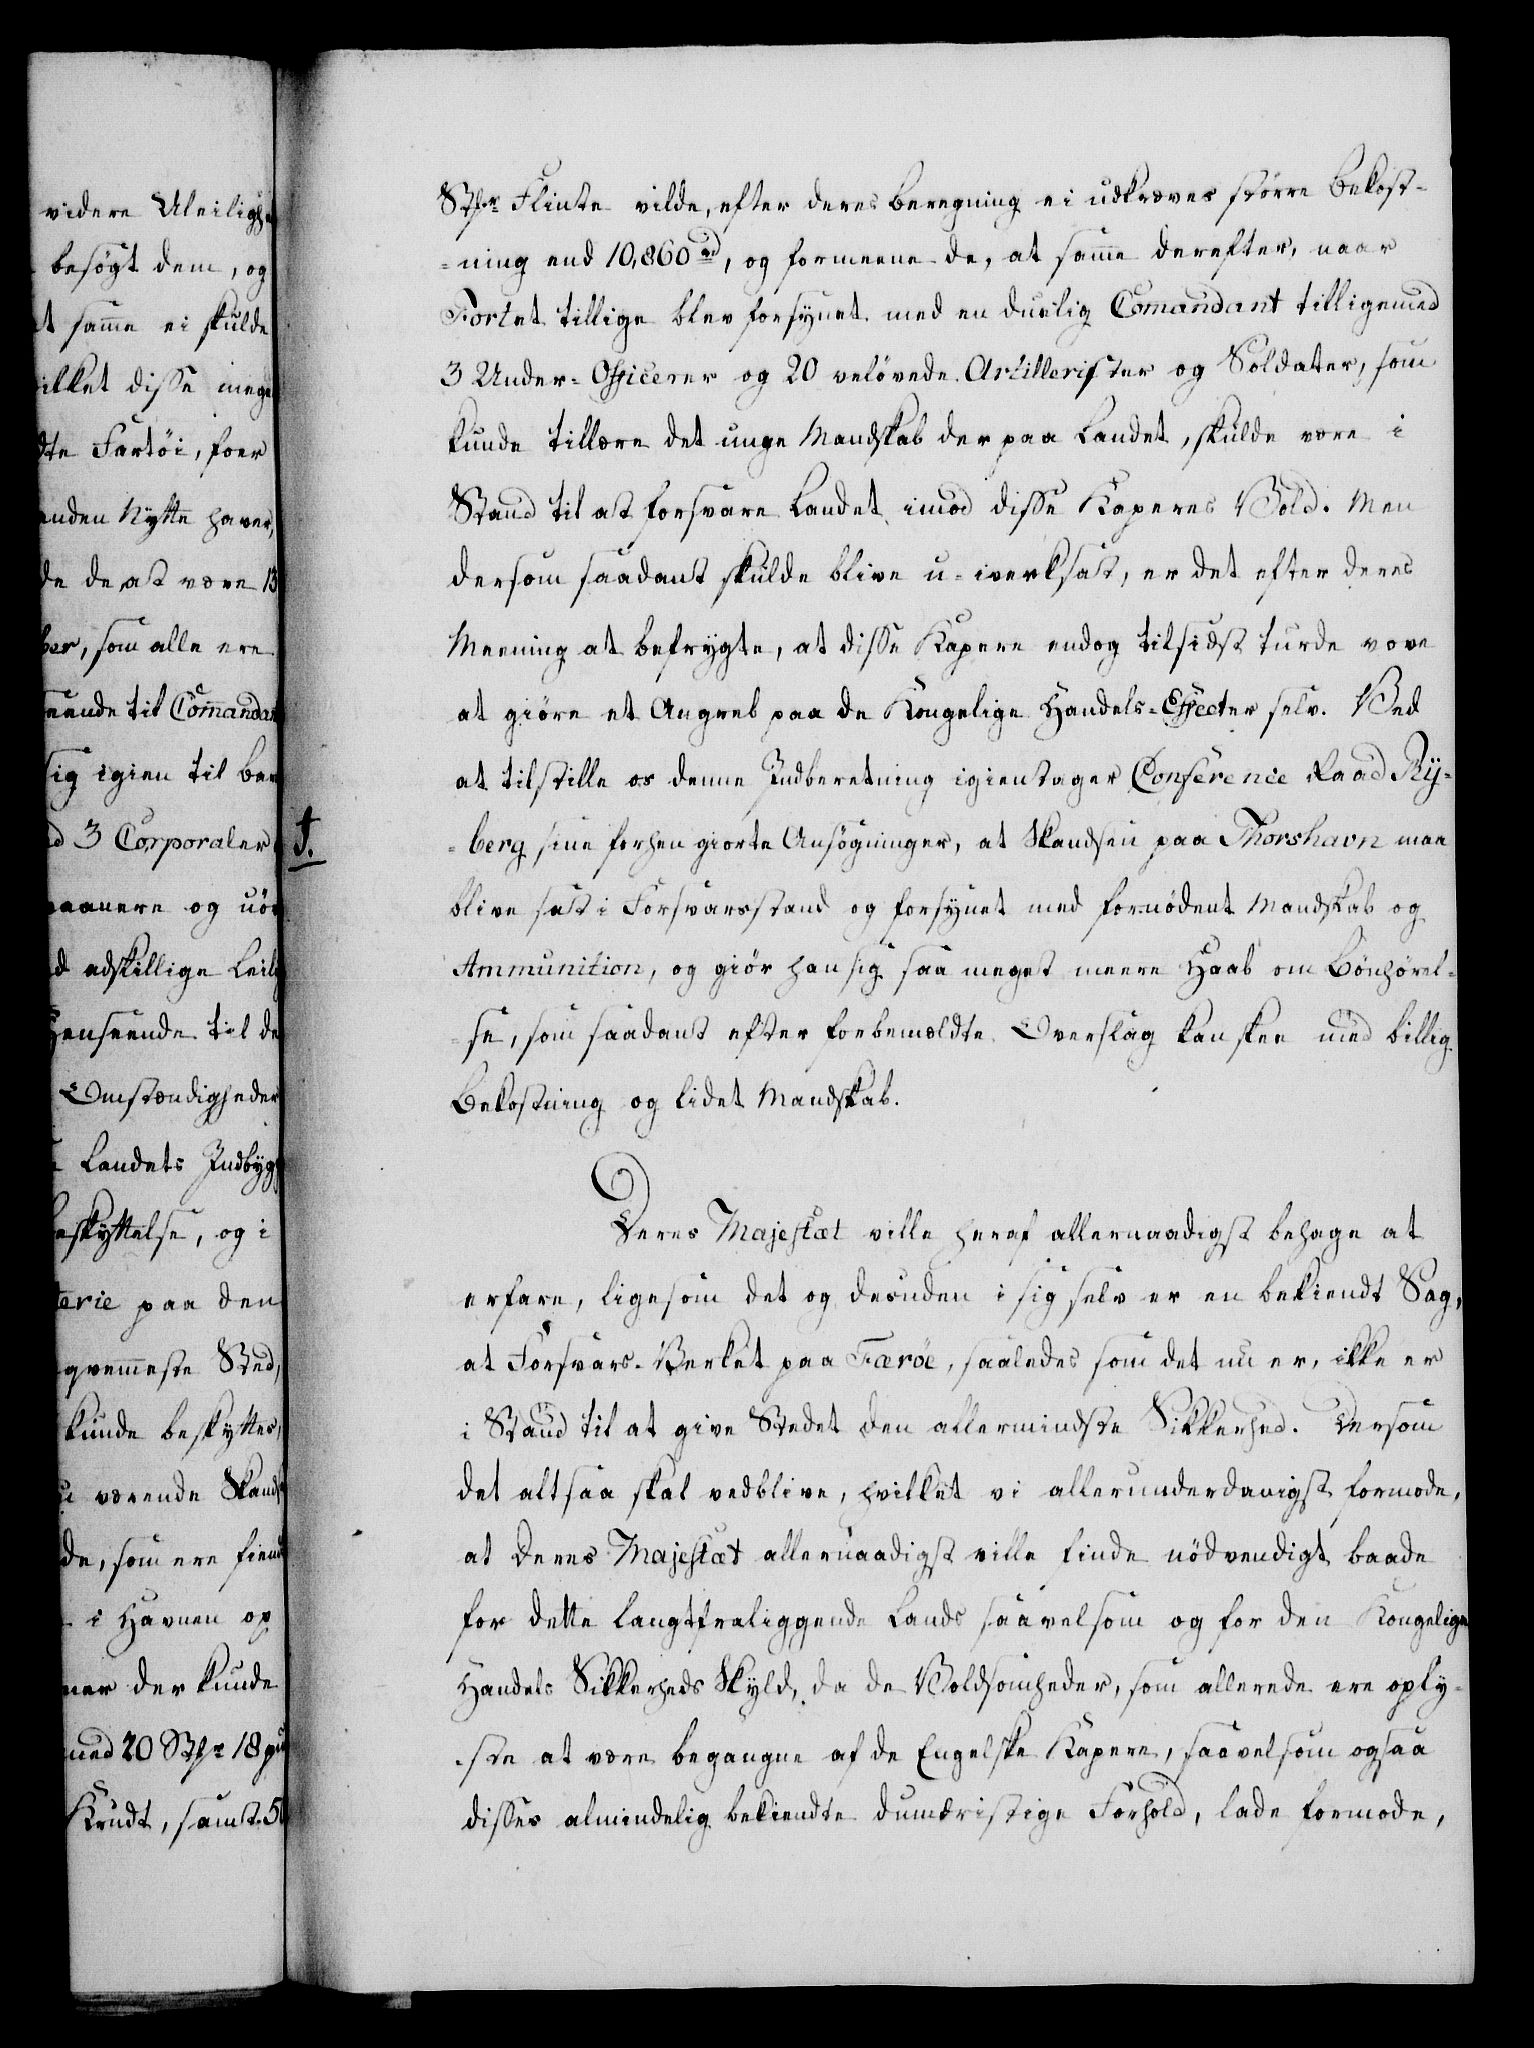 videre Uleilighe
besögt dem, og
t samme ei skulde
ilket disse mege
dte Fartöi, foer
anden Nytte haver,
de de at være 13
ber, som alle ere
seende til Comandan
sig igien til bar
d 3 Corporaler
aanere og uöv
d adskillige Leil
Henseende til de
Omstændigheder
Landets Indbyg
eskyttelse, og i
terie paa den
qvemmeste Sted,
kunde beskyttes,
u værende Skands
de, som ere fiend
i Havnen op
ner der kunde
med 20 Stkr 18 pd
Krudt, samt 50
Stkr Flinte vilde, efter deres beregning ei udkræves större bekost-
-ning end 10,860 rd, og formeene de, at samme derefter, naar
Fortet tillige blev forsynet med en duelig Comandant tilligemed
3 Under-Officerer og 20 veløvede Artillerister og Soldater, som
kunde tillære det unge Mandskab der paa Landet, skulde være i
Stand til at forsvare Landet imod disse Kaperes Vold. Men
dersom saadant skulde blive u-iverksat, er det efter deres
Meening at befrygte, at disse Kapere endog tilsidst turde vove
at giöre et Angreb paa de Kongelige Handels-Effecter selv. Ved
at tilstille os denne Indberetning igientager Conference Raad Ry-
-berg sine forhen giorte Ansögninger, at Skandsen paa Thorshavn maa
blive sat i Forsvarsstand og forsynet med fornödent Mandskab og
Ammunition, og giör han sig saa meget meere Haab om Bönhörel-
-se, som saadant efter forbemældte Overslag kan skee med billig
Bekostning og lidet Mandskab.
Deres Majestæt ville heraf allernaadigst behage at
erfare, ligesom det og desuden i sig selv er en bekiendt Sag,
at Forsvars-Verket paa Færöe, saaledes som det nu er, ikke er
i Stand til at give Stedet den allermindste Sikkerhed. Dersom
det altsaa skal vedblive, hvilket vi allerunderdanigst formode,
at Deres Majestæt allernaadigst ville finde nödvendigt baade
for dette langtfraliggende Lands saavelsom og for den Kongelige
Handels Sikkerheds Skyld, da de Voldsomheder, som allerede ere oply-
-ste at være begangne af de Engelske Kapere, saavelsom ogsaa
disses almindelig bekiendte dumdristige Forhold, lade formode,